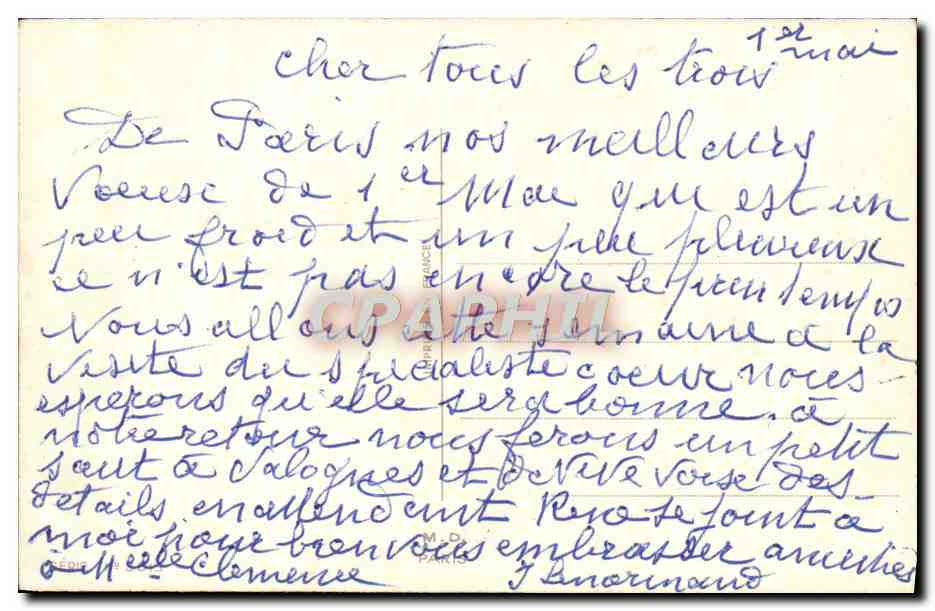 1er mai
cher tous les trois
De Paris nos meilleurs
voeux de 1er Mai qui est un
peu froid et un peu pluvieux
ce n'est pas encore le printemps
Nous allons cette semaine à la
visite du spécialiste coeur nous
esperons qu'elle sera bonne. à
nôtre retour nous ferons un petit
saut à Valognes et de vive voix des
details en attendant se joint à
moi pour bien vous embrasser amitiés
à Melle Clemence
IMPRIMÉ EN FRANCE
CPAPHIL
M.D.
PARIS
SÉRIE